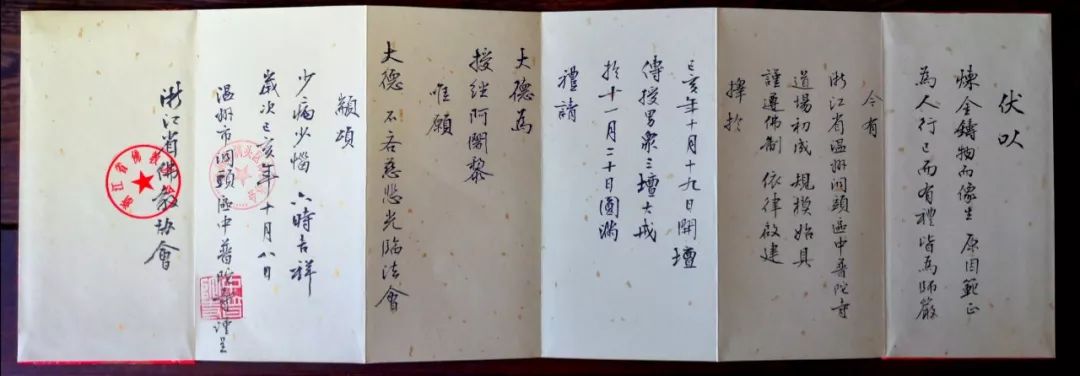 伏以
煉金鑄物而像生 原因範正
為人行已而有禮皆為師嚴
今有
浙江省温州洞頭區中普陀寺
道場初成 規模始具
謹遵佛制 依律啟建
擇於
己亥年十月十九日開壇
傳授男眾三壇大戒
於十一月二十日圓滿
禮請
大德為
授經阿闍黎
惟願
大德 不吝慈悲光臨法會
顓頌
少病少惱 六時吉祥
歲次己亥年十月八日
温州市洞頭區中普陀寺謹呈
浙江省佛教协會
浙江省佛教协会